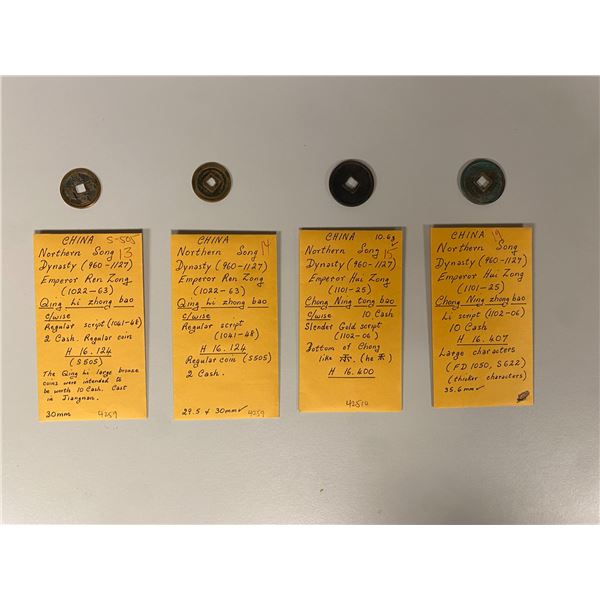 CHINA S-505
Northern Song 13
Dynasty (960-1127)
Emperor Ren Zong
(1022-63)
Qing Li zhong bao
c/wise
Regular script (1041-48)
2 Cash. Regular coin
H 16.124
(S505)
The Qing Li large bronze
coins were intended to
be worth 10 Cash. Cast
in Jiangnan.
30mm 4259
CHINA
Northern Song 14
Dynasty (960-1127)
Emperor Ren Zong
(1022-63)
Qing Li zhong bao
c/wise
Regular script
(1041-48)
H 16.124
Regular coin (S505)
2 Cash.
29.5 & 30mm 4259
CHINA 10.6g
Northern Song 15
Dynasty (960-1127)
Emperor Hui Zong
(1101-25)
Chong Ning tong bao
c/wise 10 Cash
Slender Gold script
(1102-06)
Bottom of Chong
like (he 禾)
H 16.400
CHINA 19
Northern Song
Dynasty (960-1127)
Emperor Hui Zong
(1101-25)
Chong Ning zhong bao
Li script (1102-06)
10 Cash
H 16.407
Large characters
(FD 1050, S622)
(thicker characters)
35.6mm